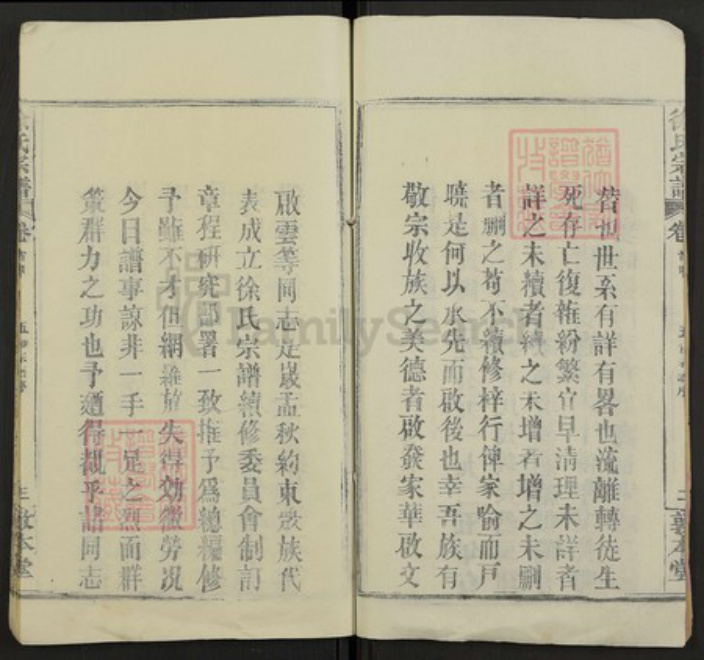 替也世系有詳有畧也流離轉徒生
死存亡復雜紛繁宜早清理未詳者
詳之未續者續之未增者增之未刪
者刪之苟不續修梓行俾家喻而戶
曉是何以承先而啟後也幸吾族有
敬宗收族之美德者啟發家華啟文
啟雲等同志是歲孟秋約束眾族代
表成立徐氏宗譜續修委員會制訂
章程研究部署一致推予爲總編修
予雖不才但網羅放失得効微勞况
今日譜事諒非一手一足之烈而群
策群力之功也予廼得觀乎諸同志
徐氏宗譜 卷
二 敦本堂
徐氏宗譜 卷
三 敦本堂
FamilySearch